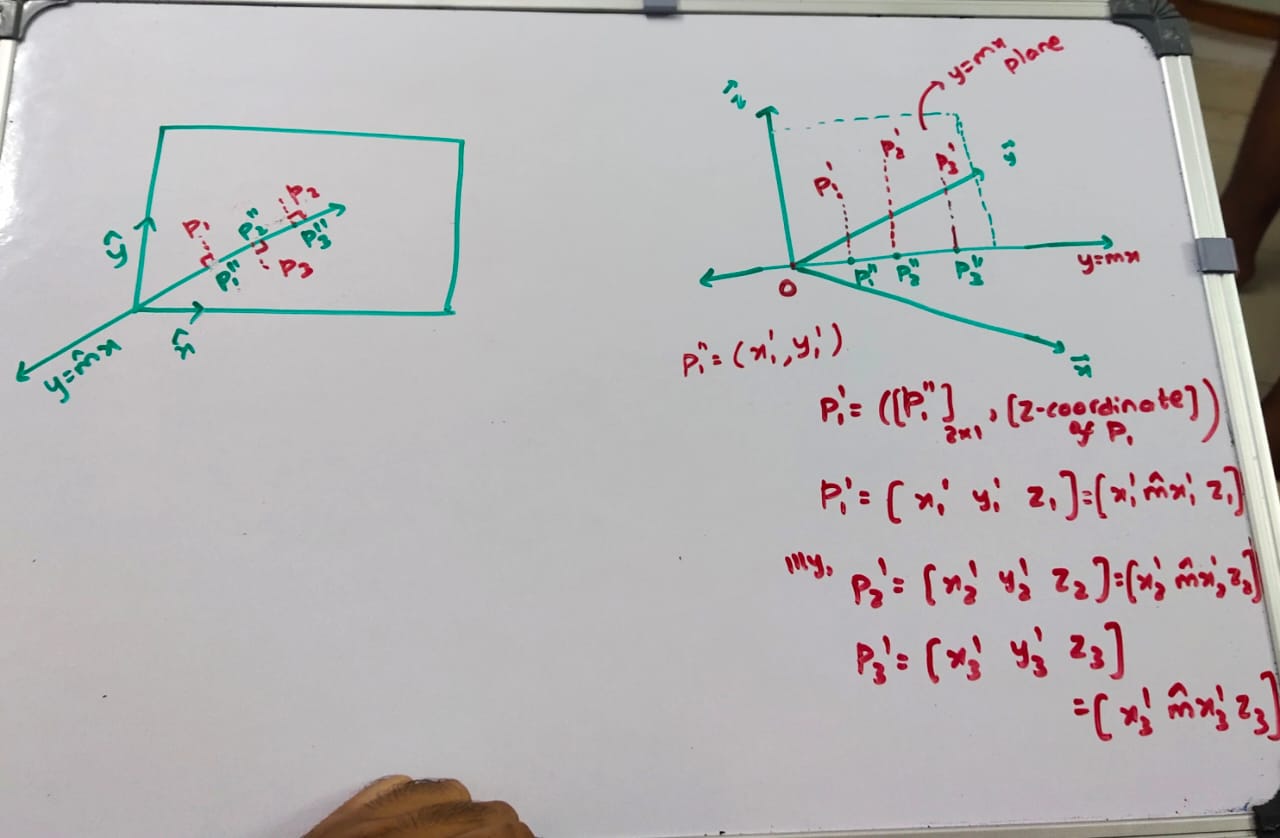 ŷ
P₁
P₁"
P₂"
P₂
P₃"
P₃
x̂
y=m̂x
ẑ
y=mx plane
P₁'
P₂'
P₃'
ŷ
O
P₁"
P₂"
P₃"
y=mx
x̂
P₁"= (x₁', y₁')
P₁'= ([P₁"]₂ₓ₁, [z-coordinate])
of P₁
P₁'= [x₁' y₁' z₁]=[x₁' m̂x₁' z₁]
|||ly, P₂'= [x₂' y₂' z₂]=[x₂' m̂x₂' z₂]
P₃'= [x₃' y₃' z₃]
=[x₃' m̂x₃' z₃]